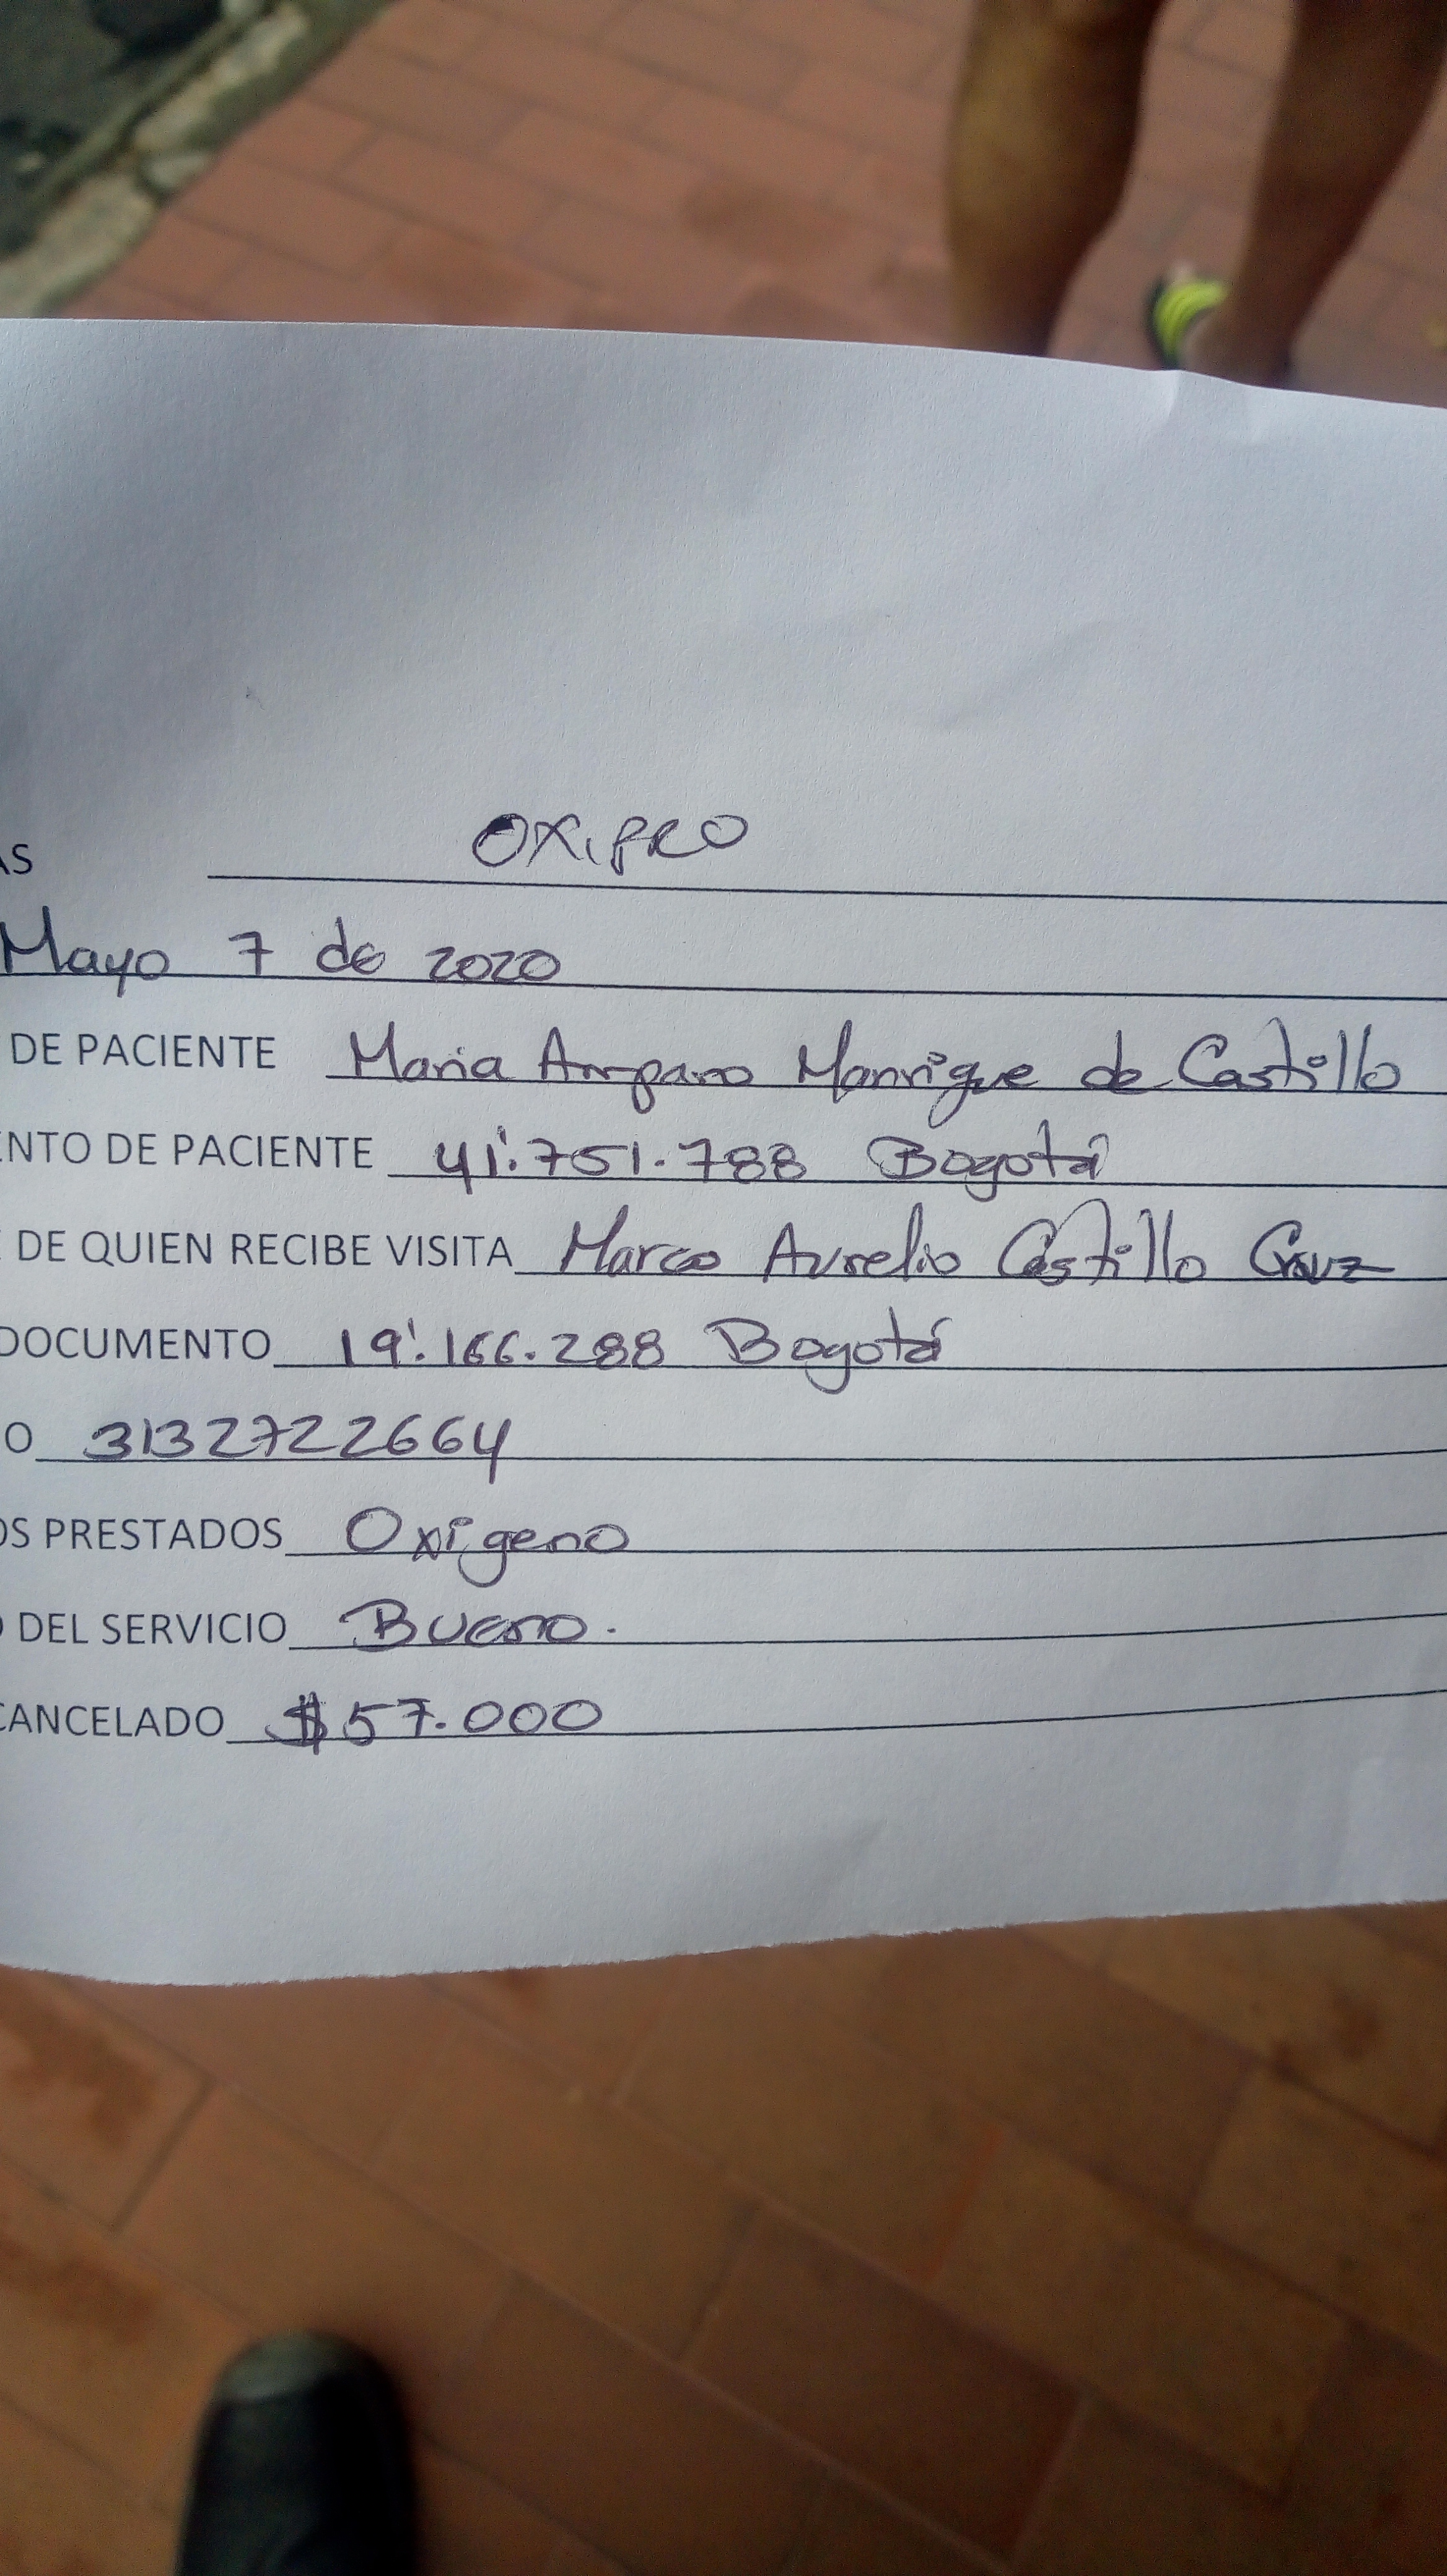 AS OXIPRO
Mayo 7 de 2020
DE PACIENTE Maria Amparo Manrique de Castillo
ENTO DE PACIENTE 41'.751.788 Bogotá
DE QUIEN RECIBE VISITA Marco Aurelio Castillo Cruz
DOCUMENTO 19'.166.288 Bogotá
O 3132722664
OS PRESTADOS Oxigeno
O DEL SERVICIO Bueno.
CANCELADO $57.000